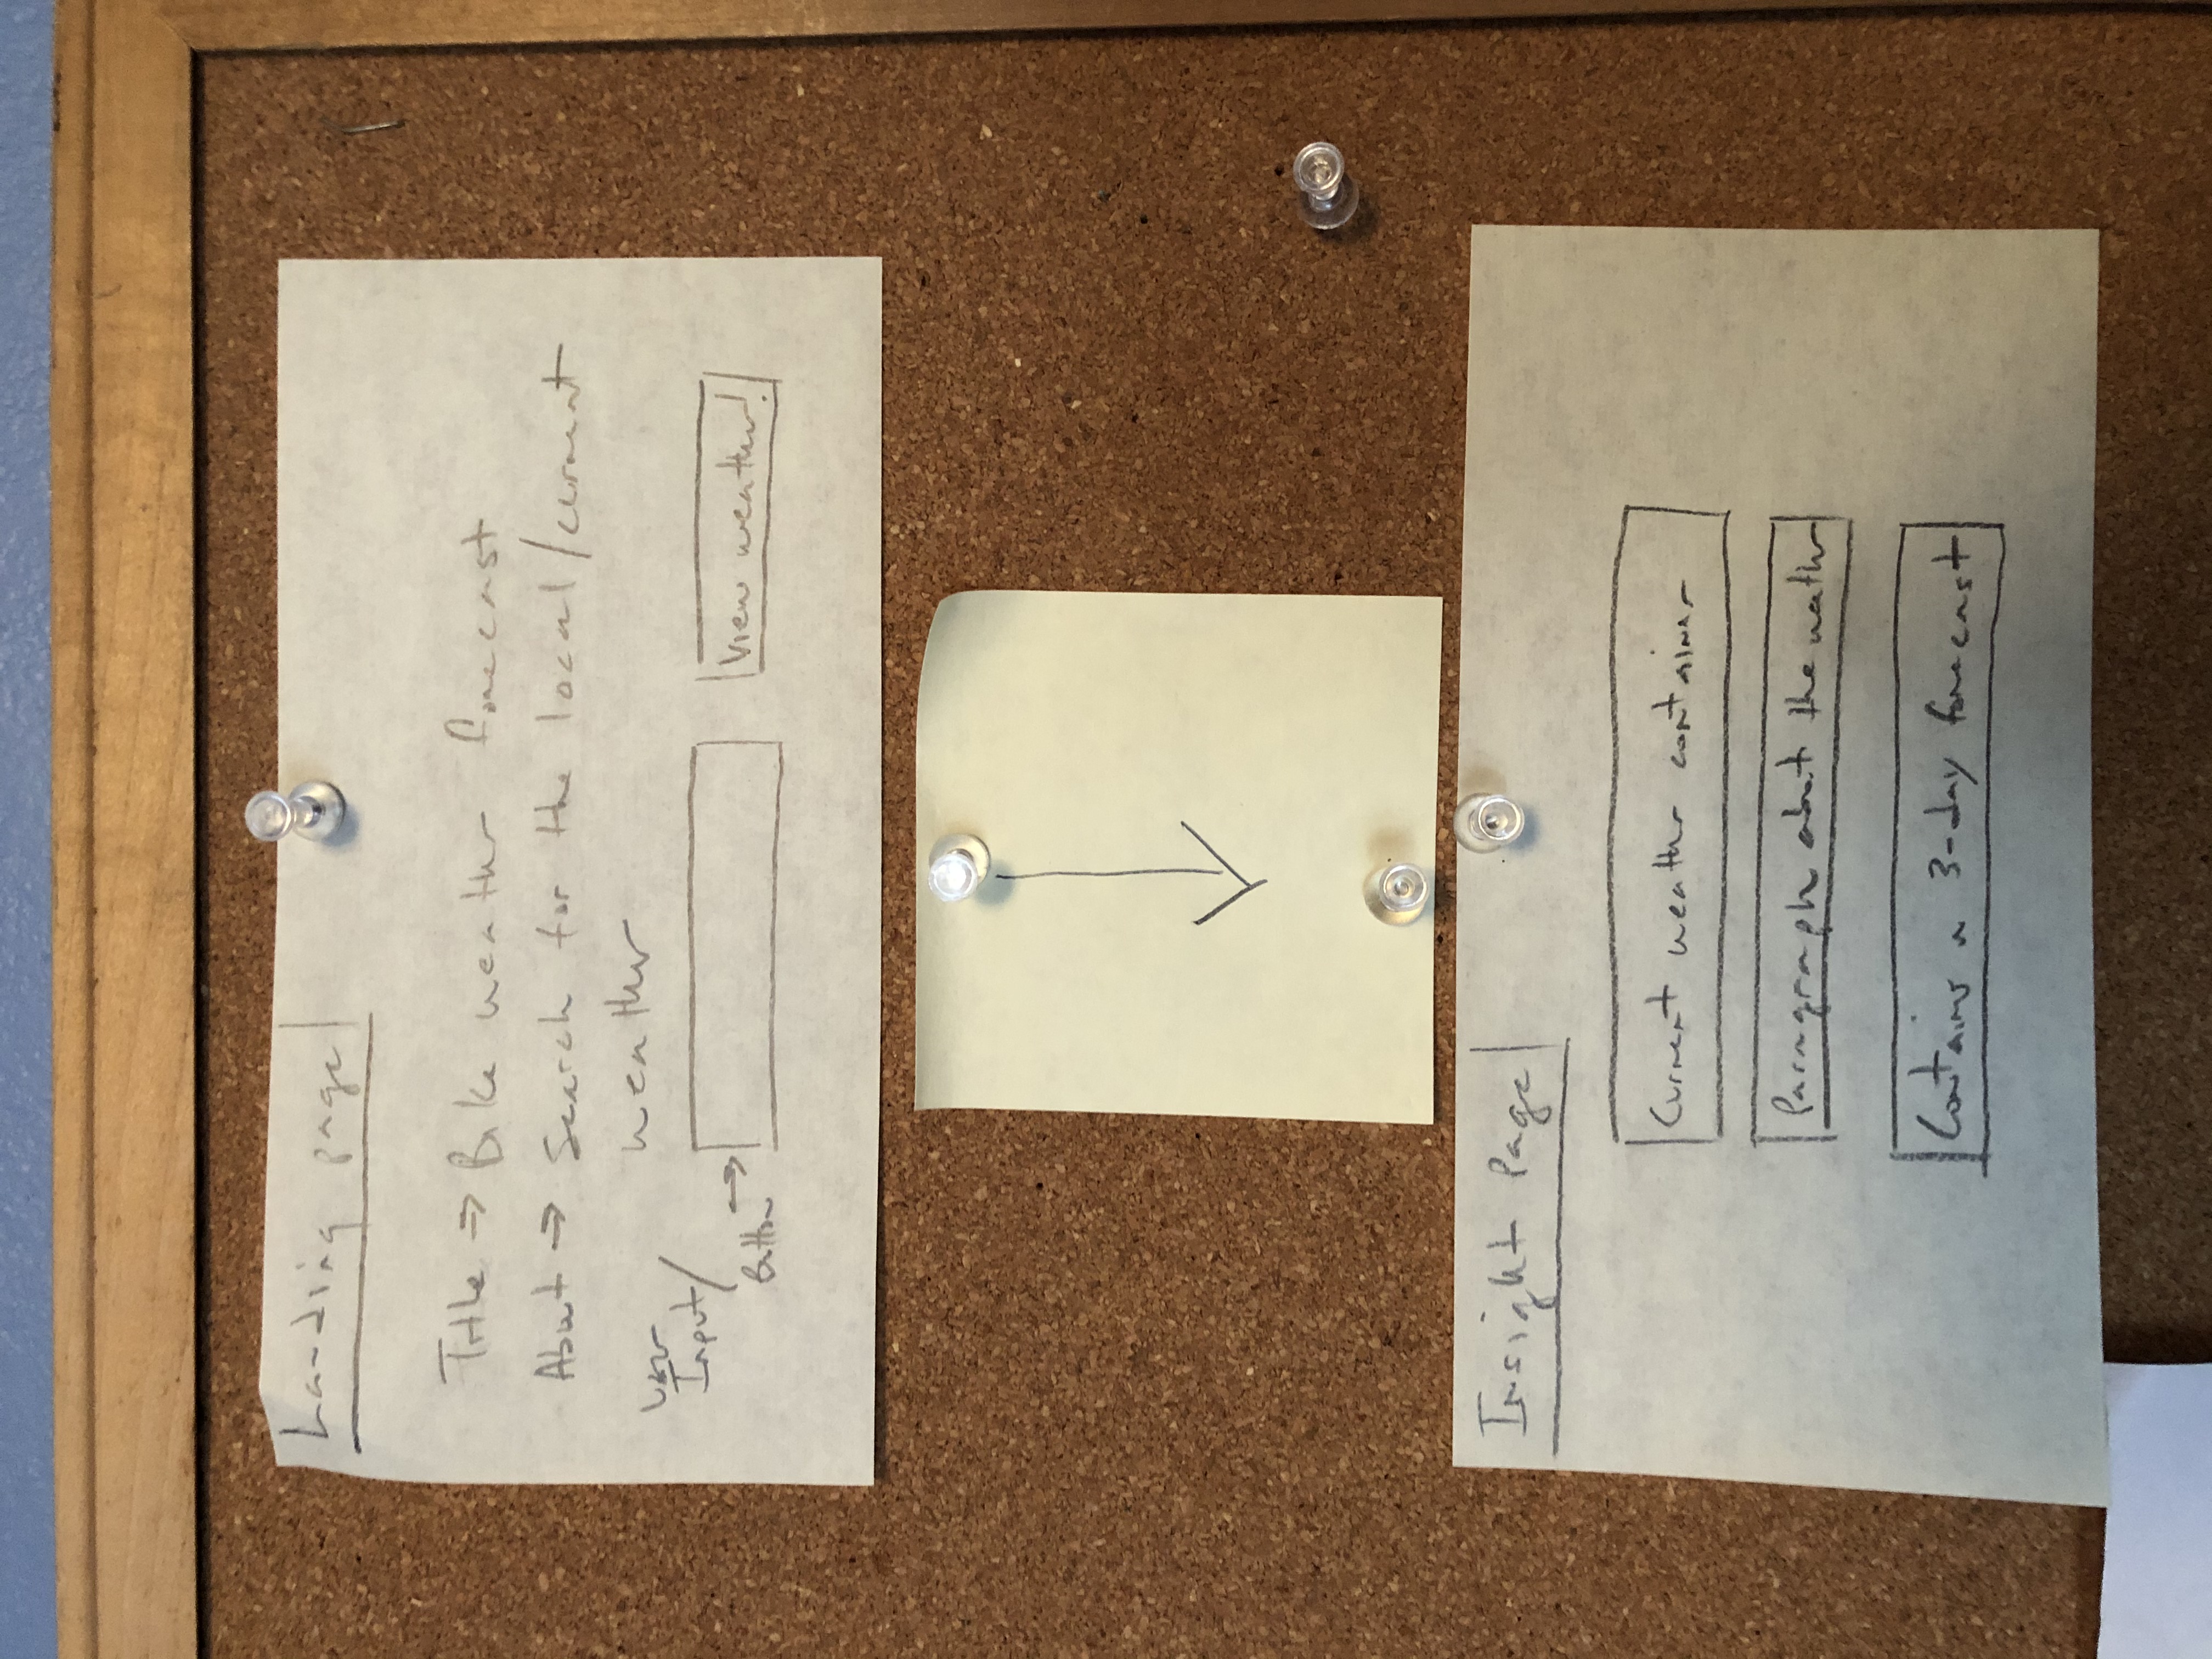 Landing page
Title => Bike weather forecast
About → Search for the local/current
weather
User
Input/
Button →
View weather!
Insight Page
Current weather container
Paragraph about the weather
Contains a 3-day forecast